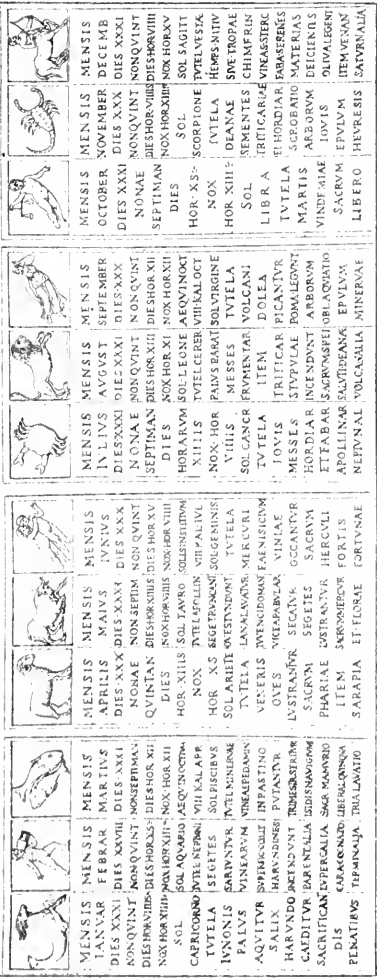 MENSIS
IANVAR
DIES XXXI
NONQVINT
DIESHORVIIIIS
NOXHORXIIIIS
SOL
CAPRICORNO
TVTELA
IVNONIS
PALVS
AQVITVR
SALIX
HARVNDO
CAEDITVR
SACRIFICAN
DIS
PENATIBVS
MENSIS
FEBRAR
DIES XXVIII
NONQVINT
DIESHOR·XS
NOXHORXIII
SOL AQVARIO
TVTEL NEPTVNI
SEGETES
SARIVNTVR
VINEARVM
SVPERFIC·COLIT
HARVNDINES
INCENDVNT
PARENTALIA
LVPERCALIA
CARA COGNATIO
TERMINALIA
MENSIS
MARTIVS
DIES·XXXI
NONSEPTMAN
DIESHOR XII
NOX·HOR XII
AEQVINOCTIVM
VIII KAL APR
SOLPISCIBVS
TVTEL MINERVAE
VINEAEPEDAMIN
INPASTINO
PVTANTVR
TRIMESTRSERITVR
ISIDISNAVIGIVM
SACR MAMVRIO
LIBERAL QVINQVA
TRIA LAVATIO
MENSIS
APRILIS
DIES·XXX
NONAE
QVINTAN
DIES
HOR·XIIIS
NOX
HOR XS
SOL ARIETE
TVTELA
VENERIS
OVES
LVSTRANTVR
SACRVM
PHARIAE
ITEM
SARAPIA
MENSIS
MAIVS
DIES·XXXI
NON·SEPTIM
DIESHORXIIIIS
NOX·HORVIIIIS
SOL TAVRO
TVTELAPOLLIN
SEGETRVNCANT
OVESTVNDVNT
LANALAVATVR
IVVENCIDOMAN
VICEAPABVLAR
SECATVR
SEGETES
LVSTRANTVR
SACRVMMERCVR
ET·FLORAE
MENSIS
IVNIVS
DIES XXX
NON QVINT
DIESHOR XV
NOX·HOR VIIII
SOLISINSTITIVM
VIII KAL·IVL
SOLGEMINIS
TVTELA
MERCVRI
FAENISICIVM
VINIAE
OCCANTVR
SACRVM
HERCVLI
FORTIS
FORTVNAE
MENSIS
IVLIVS
DIES·XXXI
NONAE
SEPTIMAN
DIES
HORARVM
XIIIIS
NOX·HOR
VIIIIS
SOL CANCR
TVTELA
IOVIS
MESSES
HORDIAR
ETFABAR
APOLLINAR
NEPTVNAL
MENSIS
AVGVST
DIES·XXXI
NONQVINT
DIESHOR·XIII
NOX HOR XI
SOL·LEONE
TVTELCERER
PANVS PARAT
MESSES
FRVMENTAR
ITEM
TRITICAR
STVPVLAE
INCENDVNT
SACRVMSPEI
SALVTIDEANAE
VOLCANALIA
MENSIS
SEPTEMBER
DIES·XXX
NONQVINT
DIESHOR XII
NOX HOR·XII
AEQVINOCT
VIII·KALOCT
SOLVIRGINE
TVTELA
VOLCANI
DOLEA
PICANTVR
POMALEGVNT
ARBORVM
OBLAQVIATIO
EPVLVM
MINERVAE
MENSIS
OCTOBER
DIES XXXI
NONAE
SEPTIMAN
DIES
HOR·XS
NOX
HOR XIII
SOL
LIBRA
TVTELA
MARTIS
VINDEMIAE
SACRVM
LIBERO
MENSIS
NOVEMBER
DIES XXX
NONQVINT
DIESHOR·VIIIIS
NOX HORXIIIIS
SOL
SCORPIONE
TVTELA
DEANAE
SEMENTES
TRITICARIAE
ET·HORDIAR
SCROBATIO
ARBORVM
IOVIS
EPVLVM
HEVRESIS
MENSIS
DECEMB
DIES XXXI
NONQVINT
DIESHORVIIII
NOX HORXV
SOL SAGITT
TVTELVESTAE
HIEMPS·INITIV
SIVE·TROPAE
CHIMERIN
VINEAS·STERC
FABA·SERENES
MATERIAS
DEICIENTES
OLIVALEGENT
ITEMVENAN
SATVRNALIA